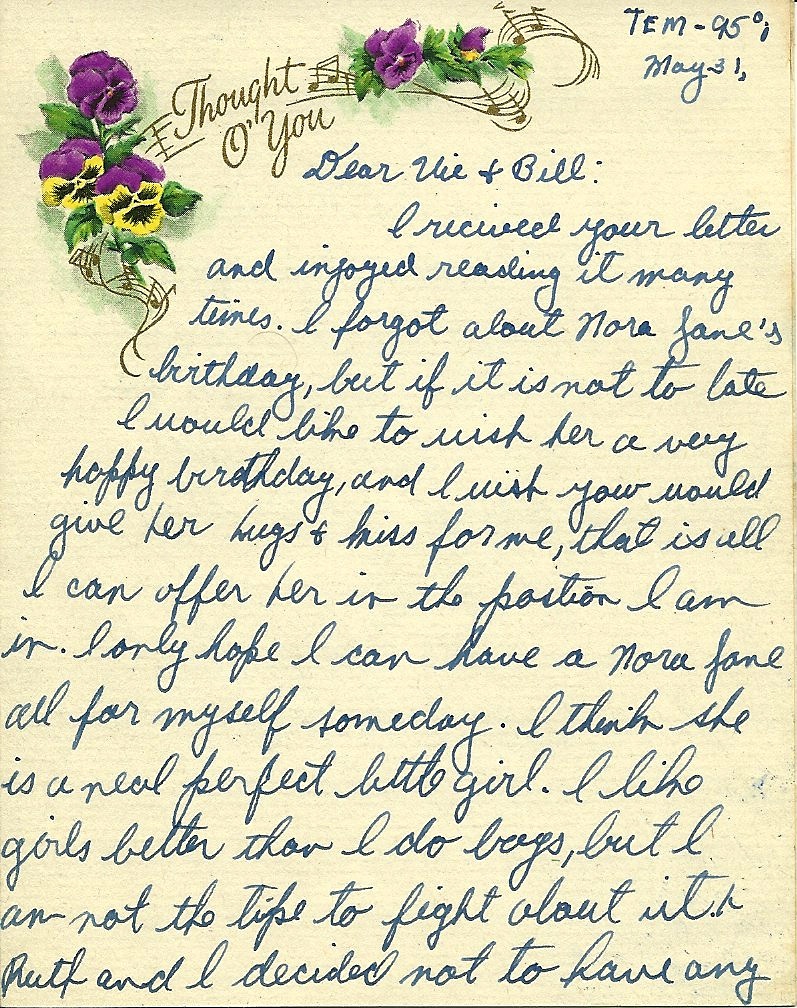 TEM - 95°;
May 31,
Thought
O' You
Dear Vic & Bill:
I recived your letter
and injoyed reading it many
times. I forgot about Nora Jane's
birthday, but if it is not to late
I would like to wish her a very
happy birthday, and I wish you would
give her hugs & kiss for me, that is all
I can offer her in the postion I am
in. I only hope I can have a Nora Jane
all for myself someday. I think she
is a real perfect little girl. I like
girls better than I do boys, but I
am not the tipe to fight about it.
Ruth and I decided not to have any